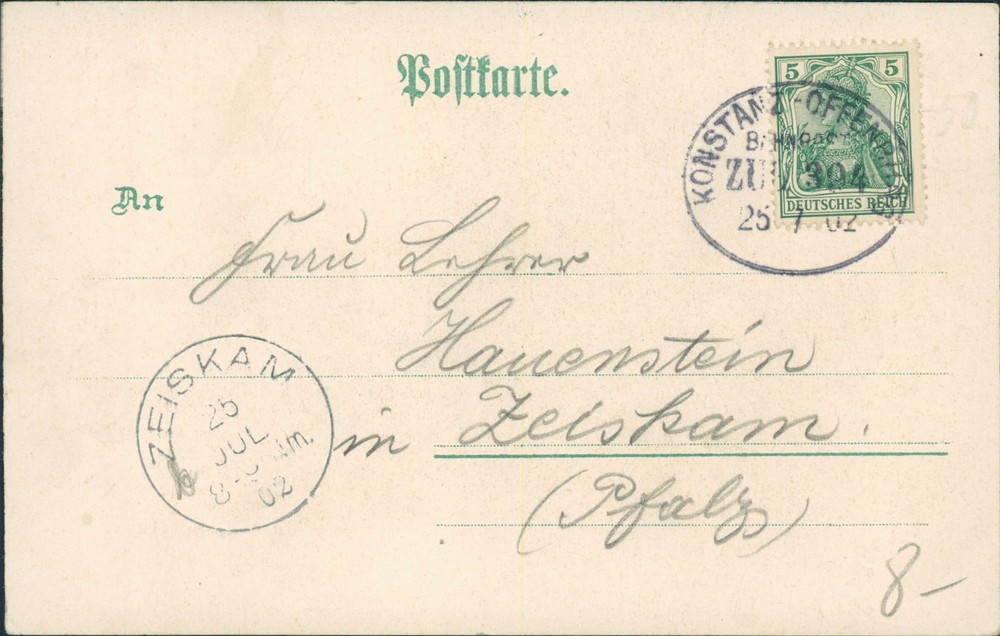 Postkarte.
5 5
DEUTSCHES REICH
KONSTANZ-OFFENBURG
BAHNPOST
ZUG 304
25 7 02
An
Frau Lehrer
Hauenstein
in Zeiskam.
(Pfalz)
ZEISKAM
25
JUL
02
8-